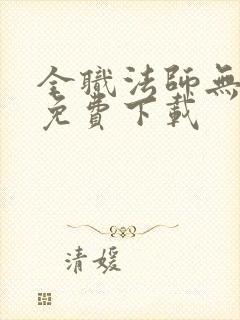 全職法師無
免費下載
清媛